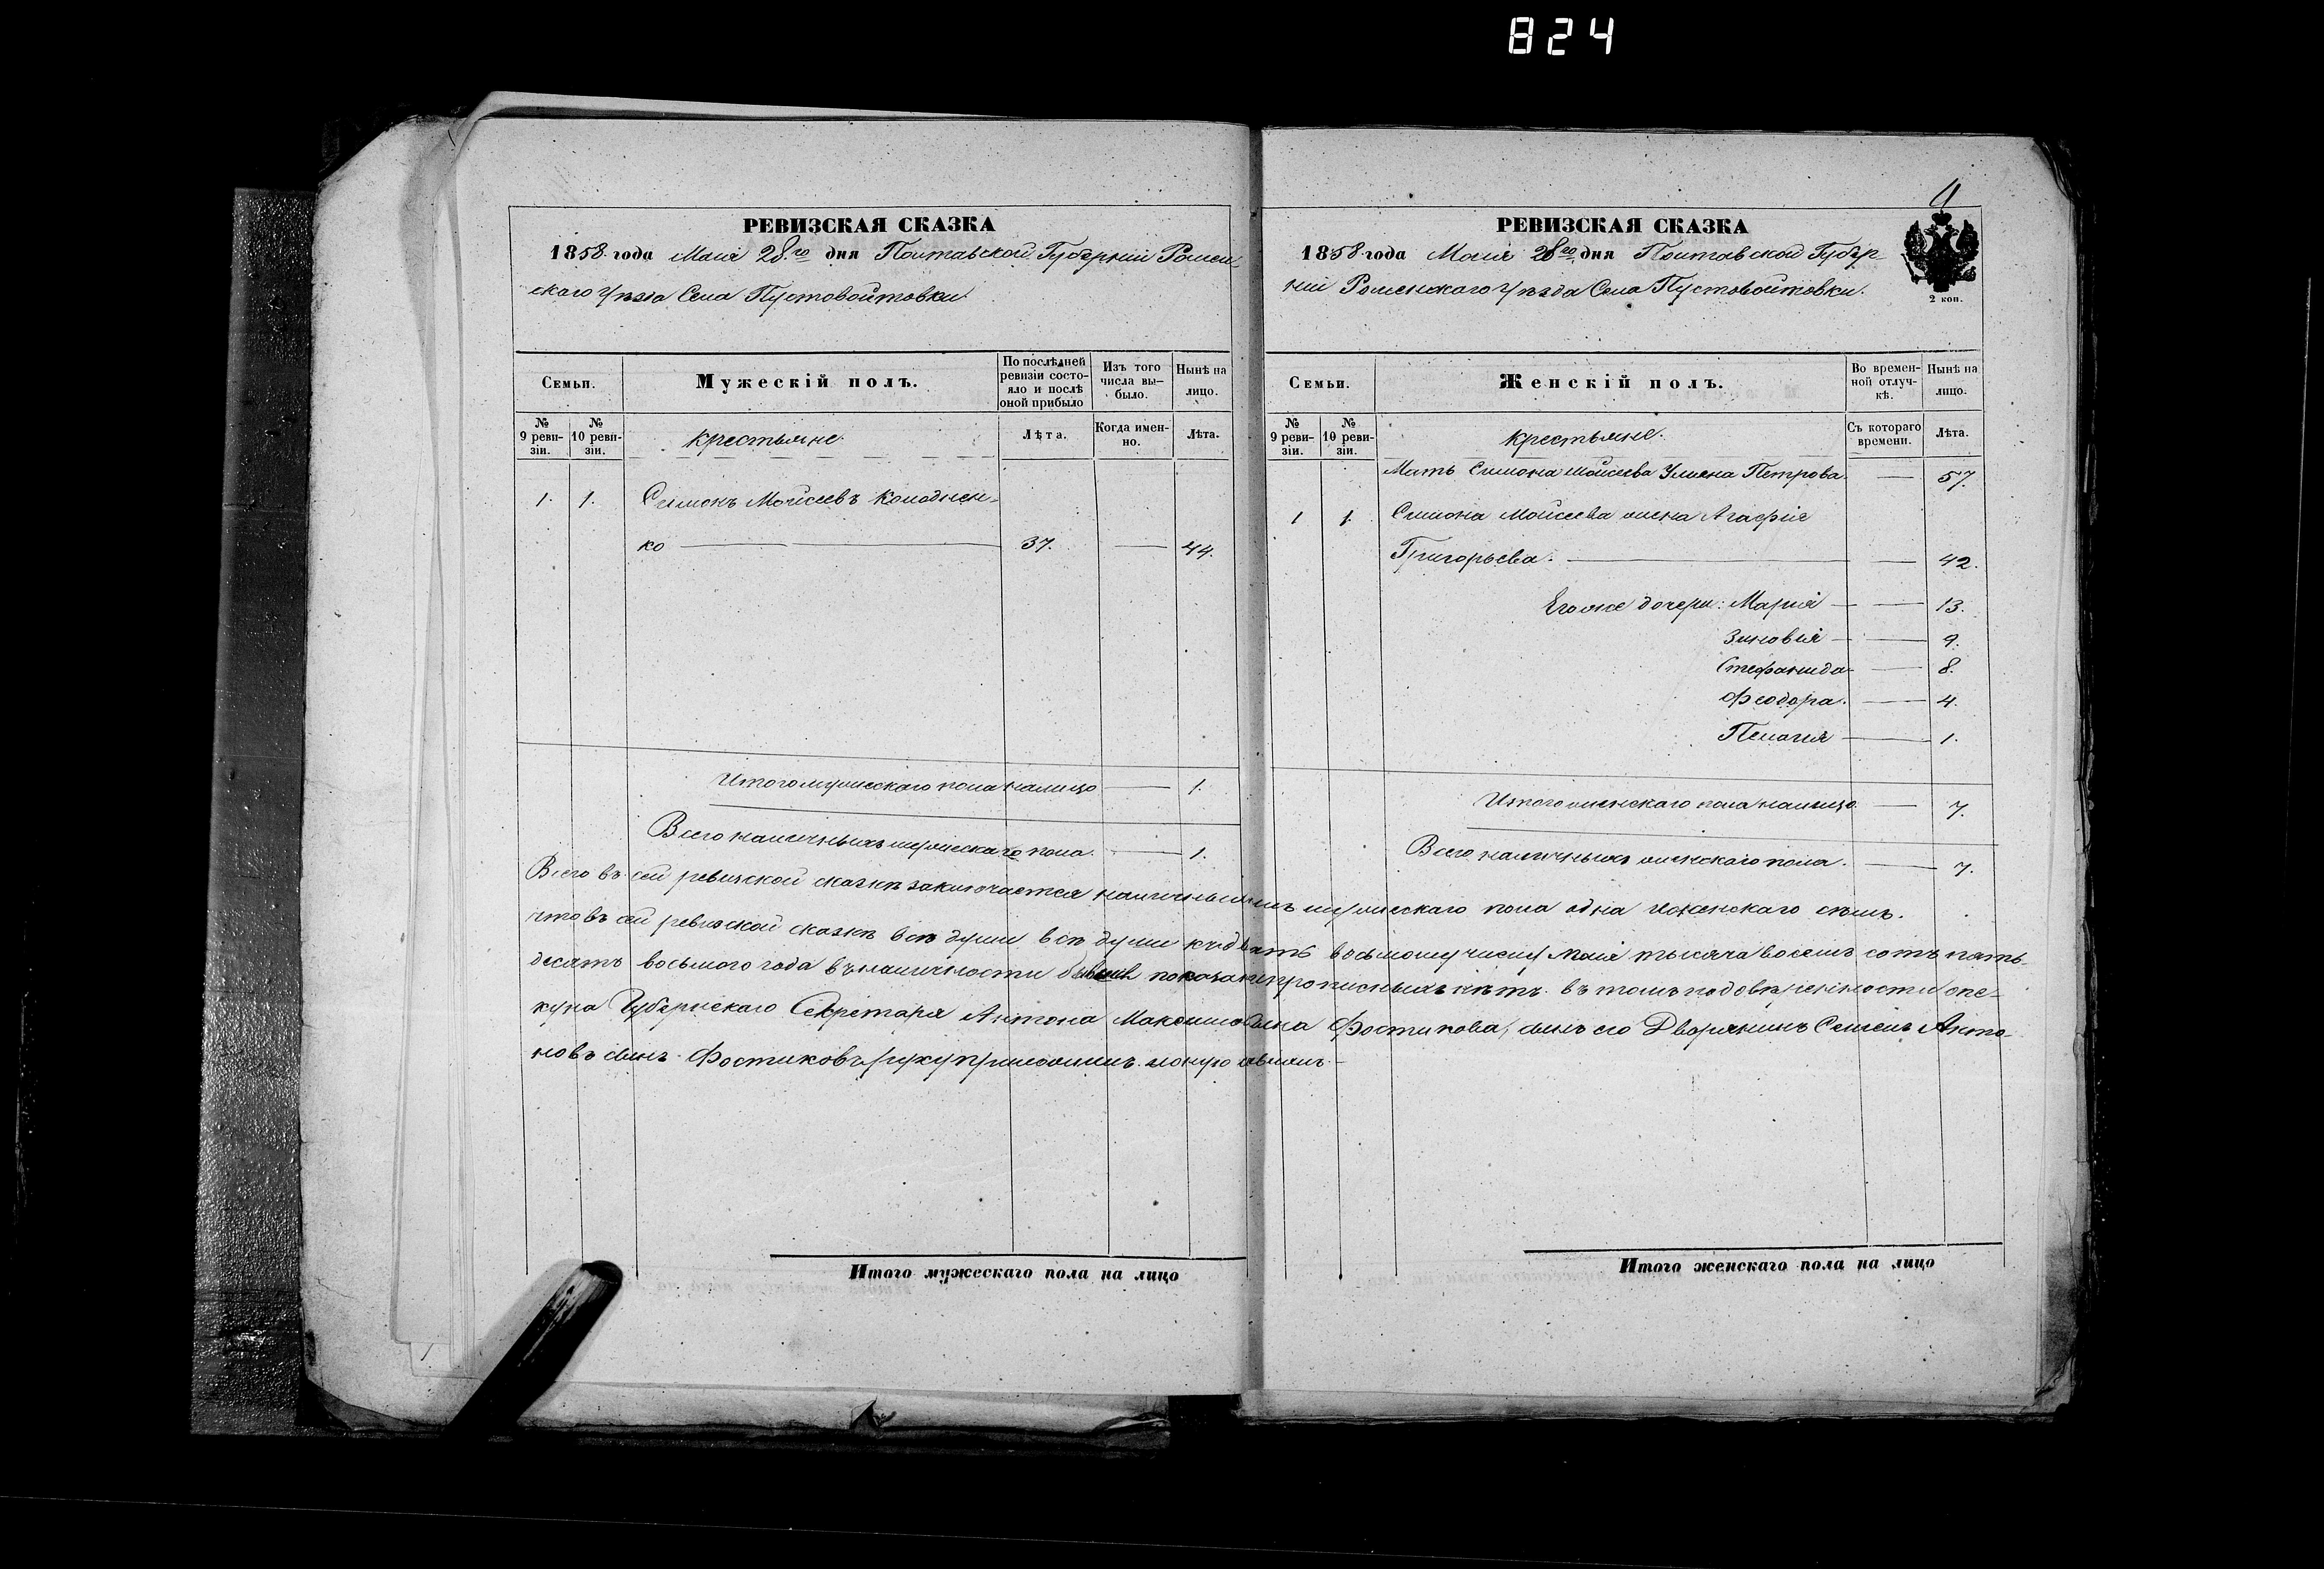 824
РЕВИЗСКАЯ СКАЗКА
1858 года Маія 28го дня Полтавской Губерніи Ромен
скаго Уѣзда Села Пустовойтовки
Семьи.
Мужескій полъ.
По послѣдней ревизіи состо-
яло и послѣ оной прибыло
Изъ того числа вы-
было.
Нынѣ на лицо.
№ 9 реви-
зіи.
№ 10 реви-
зіи.
крестьяне.
Лѣта.
Когда имен-
но.
Лѣта.
1. 1. Симонъ Мойсеевъ Колоднен-
ко 37. — 44.
Итого мужескаго пола налицо — 1.
Всего наличныхъ мужескаго пола. — 1.
РЕВИЗСКАЯ СКАЗКА
1858 года Маія 28го дня Полтавской Губер-
ніи Роменскаго Уѣзда Села Пустовойтовки.
2 коп.
Семьи.
Женскій полъ.
Во времен-
ной отлуч-
кѣ.
Нынѣ на лицо.
№ 9 реви-
зіи.
№ 10 реви-
зіи.
крестьяне.
Съ котораго времени.
Лѣта.
Мать Симона Мойсеева Улиана Петрова — 57.
1 1. Симона Мойсеева жена Агафія
Григорьева. — 42.
Егоже дочери: Марія — 13.
Зиновія — 9.
Стефанида — 8.
Феодора. — 4.
Пелагія — 1.
Итого женскаго пола налицо. — 7.
Всего наличныхъ женскаго пола. — 7.
Всего въ сей ревизской сказкѣ заключается наличными мужескаго пола одна и женскаго семь.
что въ сей ревизской сказкѣ всѣ души всѣ души къ двадцать восьмому числу Маія тысяча восемь сотъ пять-
десятъ восьмого года въ наличности бывшія показаны прописныхъ нѣтъ. въ томъ подовѣренности опе-
куна Губернскаго Секретаря Антона Максимова сына Фостикова, сынъ его Дворянинъ Семенъ Анто-
новъ сынъ Фостиковъ руку приложилъ
Итого мужескаго пола на лицо
Итого женскаго пола на лицо